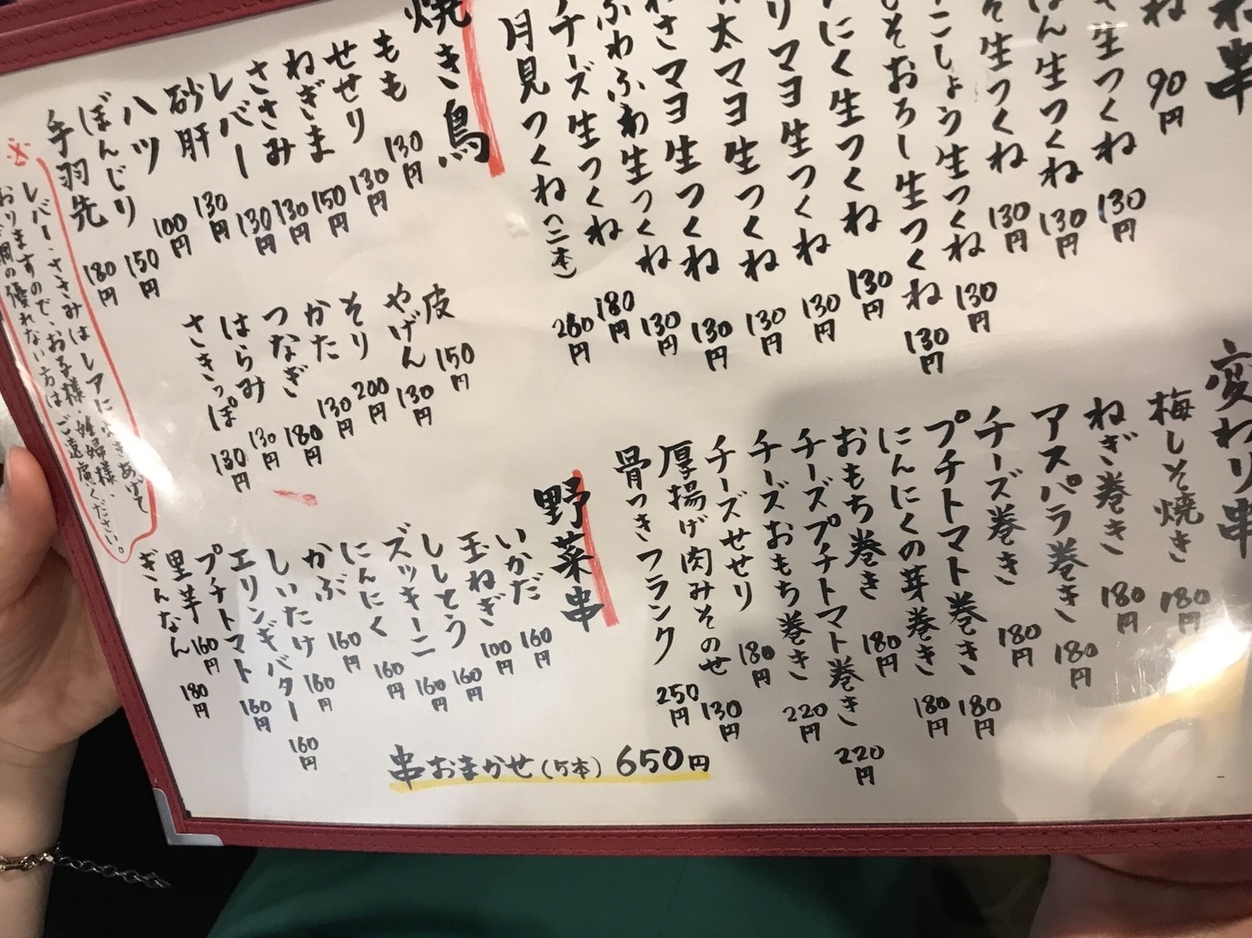 ね串
ね 90円
生つくね 130円
ん生つくね 130円
そ生つくね 130円
こしょう生つくね 130円
そおろし生つくね 130円
にく生つくね 130円
リマヨ生つくね 130円
太マヨ生つくね 130円
さマヨ生つくね 130円
ふわふわ生つくね 130円
チーズ生つくね 180円
月見つくね(二本) 280円
焼き鳥
もも 130円
せせり 130円
ねぎま 150円
ささみ 130円
レバー 130円
砂肝 130円
ハツ 100円
ぼんじり 150円
手羽先 180円
皮 150円
やげん 130円
そり 200円
かた 130円
つなぎ 180円
はらみ 130円
さきっぽ 130円
※ レバー・ささみはレアに焼きあげて
おりますので、お子様、妊婦様、
体調の優れない方はご遠慮ください。
変わり串
梅しそ焼き 180円
ねぎ巻き 180円
アスパラ巻き 180円
チーズ巻き 180円
プチトマト巻き 180円
にんにくの芽巻き 180円
おもち巻き 180円
チーズプチトマト巻き 220円
チーズおもち巻き 220円
チーズせせり 180円
厚揚げ肉みそのせ 130円
骨つきフランク 250円
野菜串
いかだ 160円
玉ねぎ 100円
ししとう 160円
ズッキーニ 160円
にんにく 160円
かぶ 160円
しいたけ 160円
エリンギバター 160円
プチトマト 160円
里芋 160円
ぎんなん 180円
串おまかせ(5本) 650円